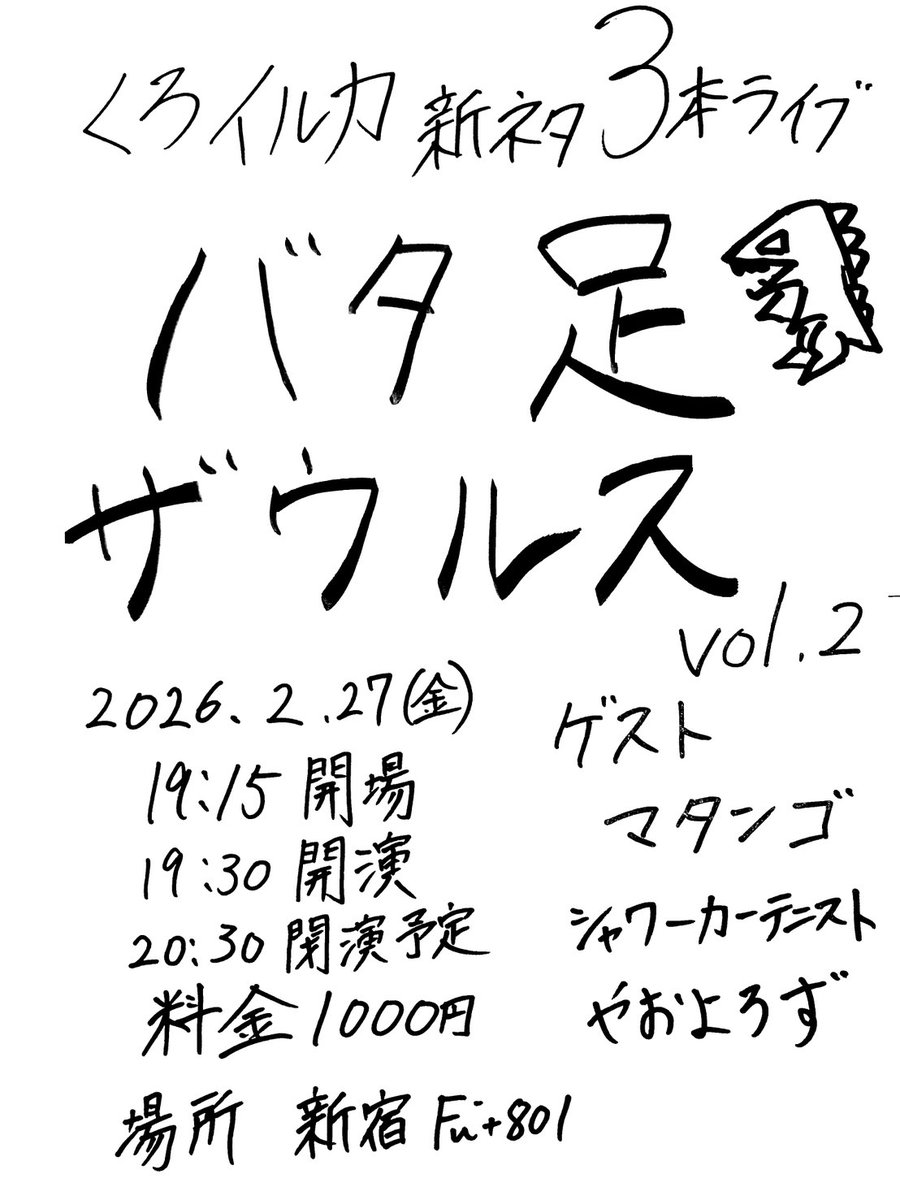 くろイルカ 新ネタ3本ライブ
バタ足
ザウルス
vol.2
2026.2.27(金)
19:15 開場
19:30 開演
20:30 閉演予定
料金1000円
場所 新宿 Fu+801
ゲスト
マタンゴ
シャワーカーテニスト
やおよろず